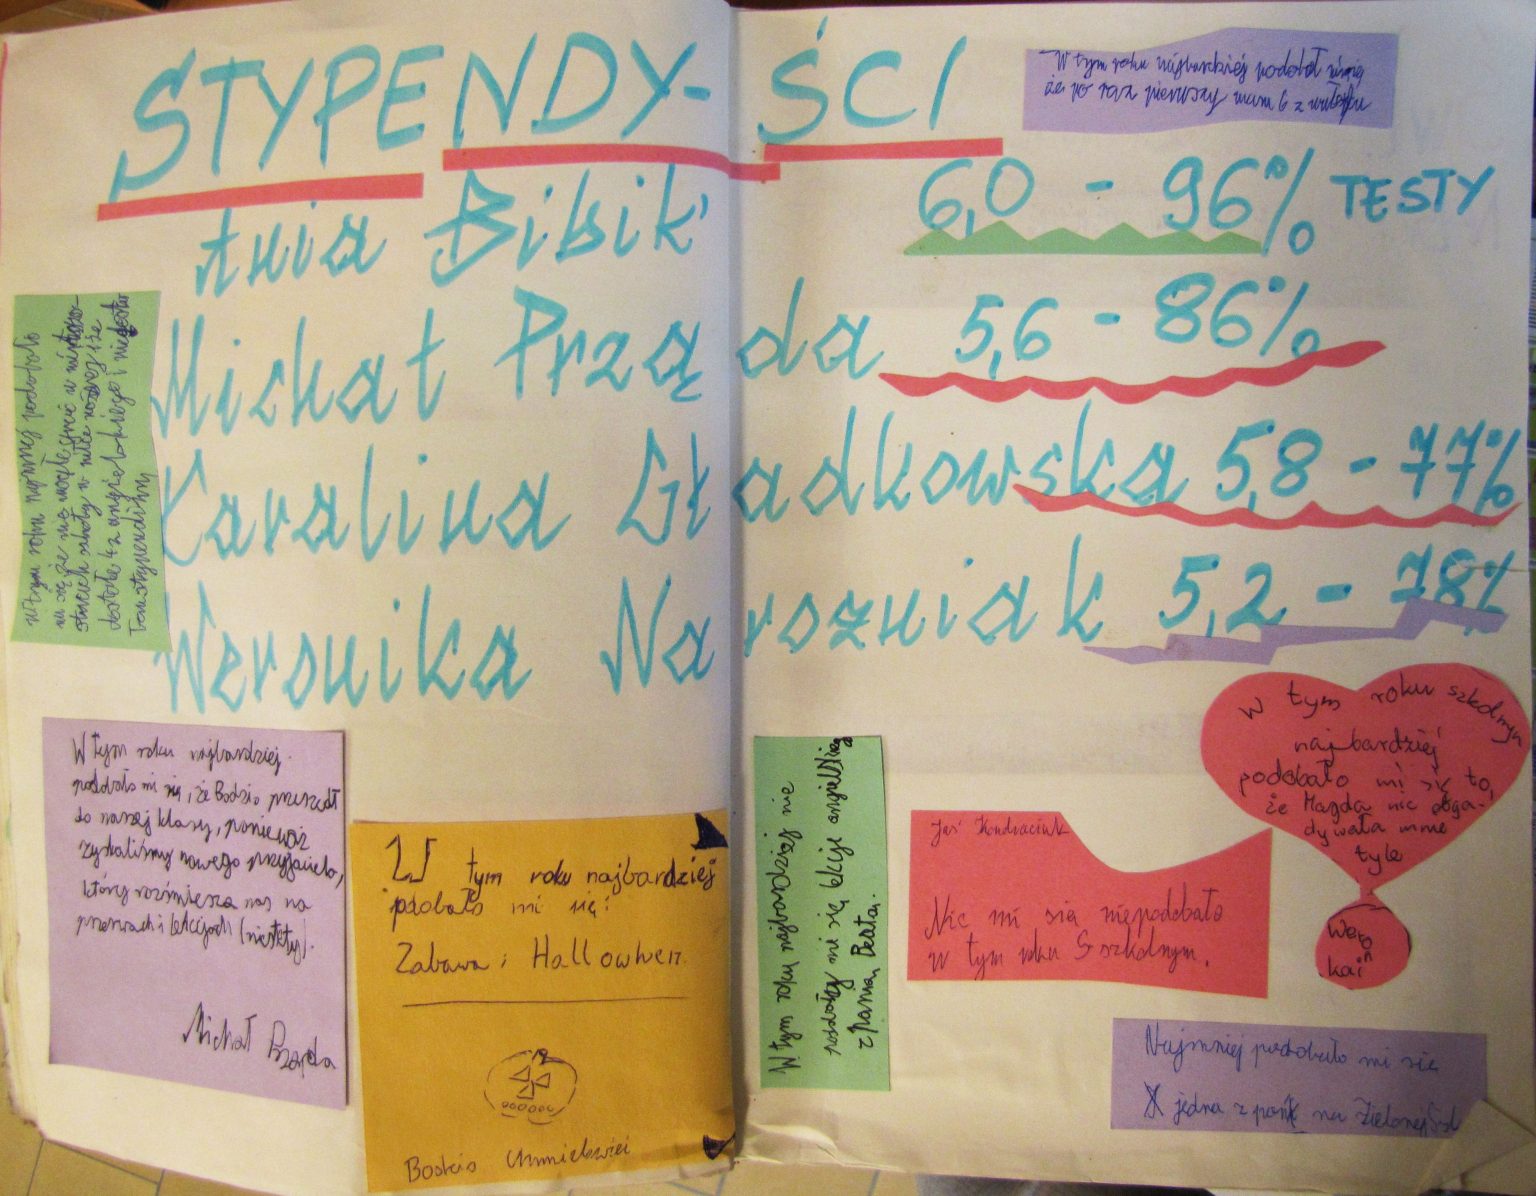 STYPENDY-ŚCI
W tym roku najbardziej podobał mi się
że po raz pierwszy mam 6 z
Ania Bibik 6,0 - 96% TESTY
Michał Prząda 5,6 - 86%
Karolina Gładkowska 5,8 - 77%
Weronika Naroźniak 5,2 - 78%
w tym roku najmniej podobało
mi się że nie mogłe być w
szkoły w
dostała 4 z angielskiego i
W tym roku najbardziej
podobało mi się, że Bodzio przeszedł
do naszej klasy, ponieważ
zyskaliśmy nowego przyjaciela,
który rozśmiesza nas na
przerwach i lekcjach (niestety).
Michał Prząda
W tym roku najbardziej
pdobało mi się:
Zabawa i Hallowwen.
W tym roku najbardziej nie
podobały mi się lekcje angielskiego
z Panią Beatą.
Jaś Kondraciuk
Nic mi sią niepodobało
w tym roku S szkolnym.
W tym roku szkolnym
najbardziej
podobało mi się to,
że Magda nie obga-
dywała mnie
tyle
Wero
n
kai
Najmniej podobało mi się
X jedna z pań na Zielonej